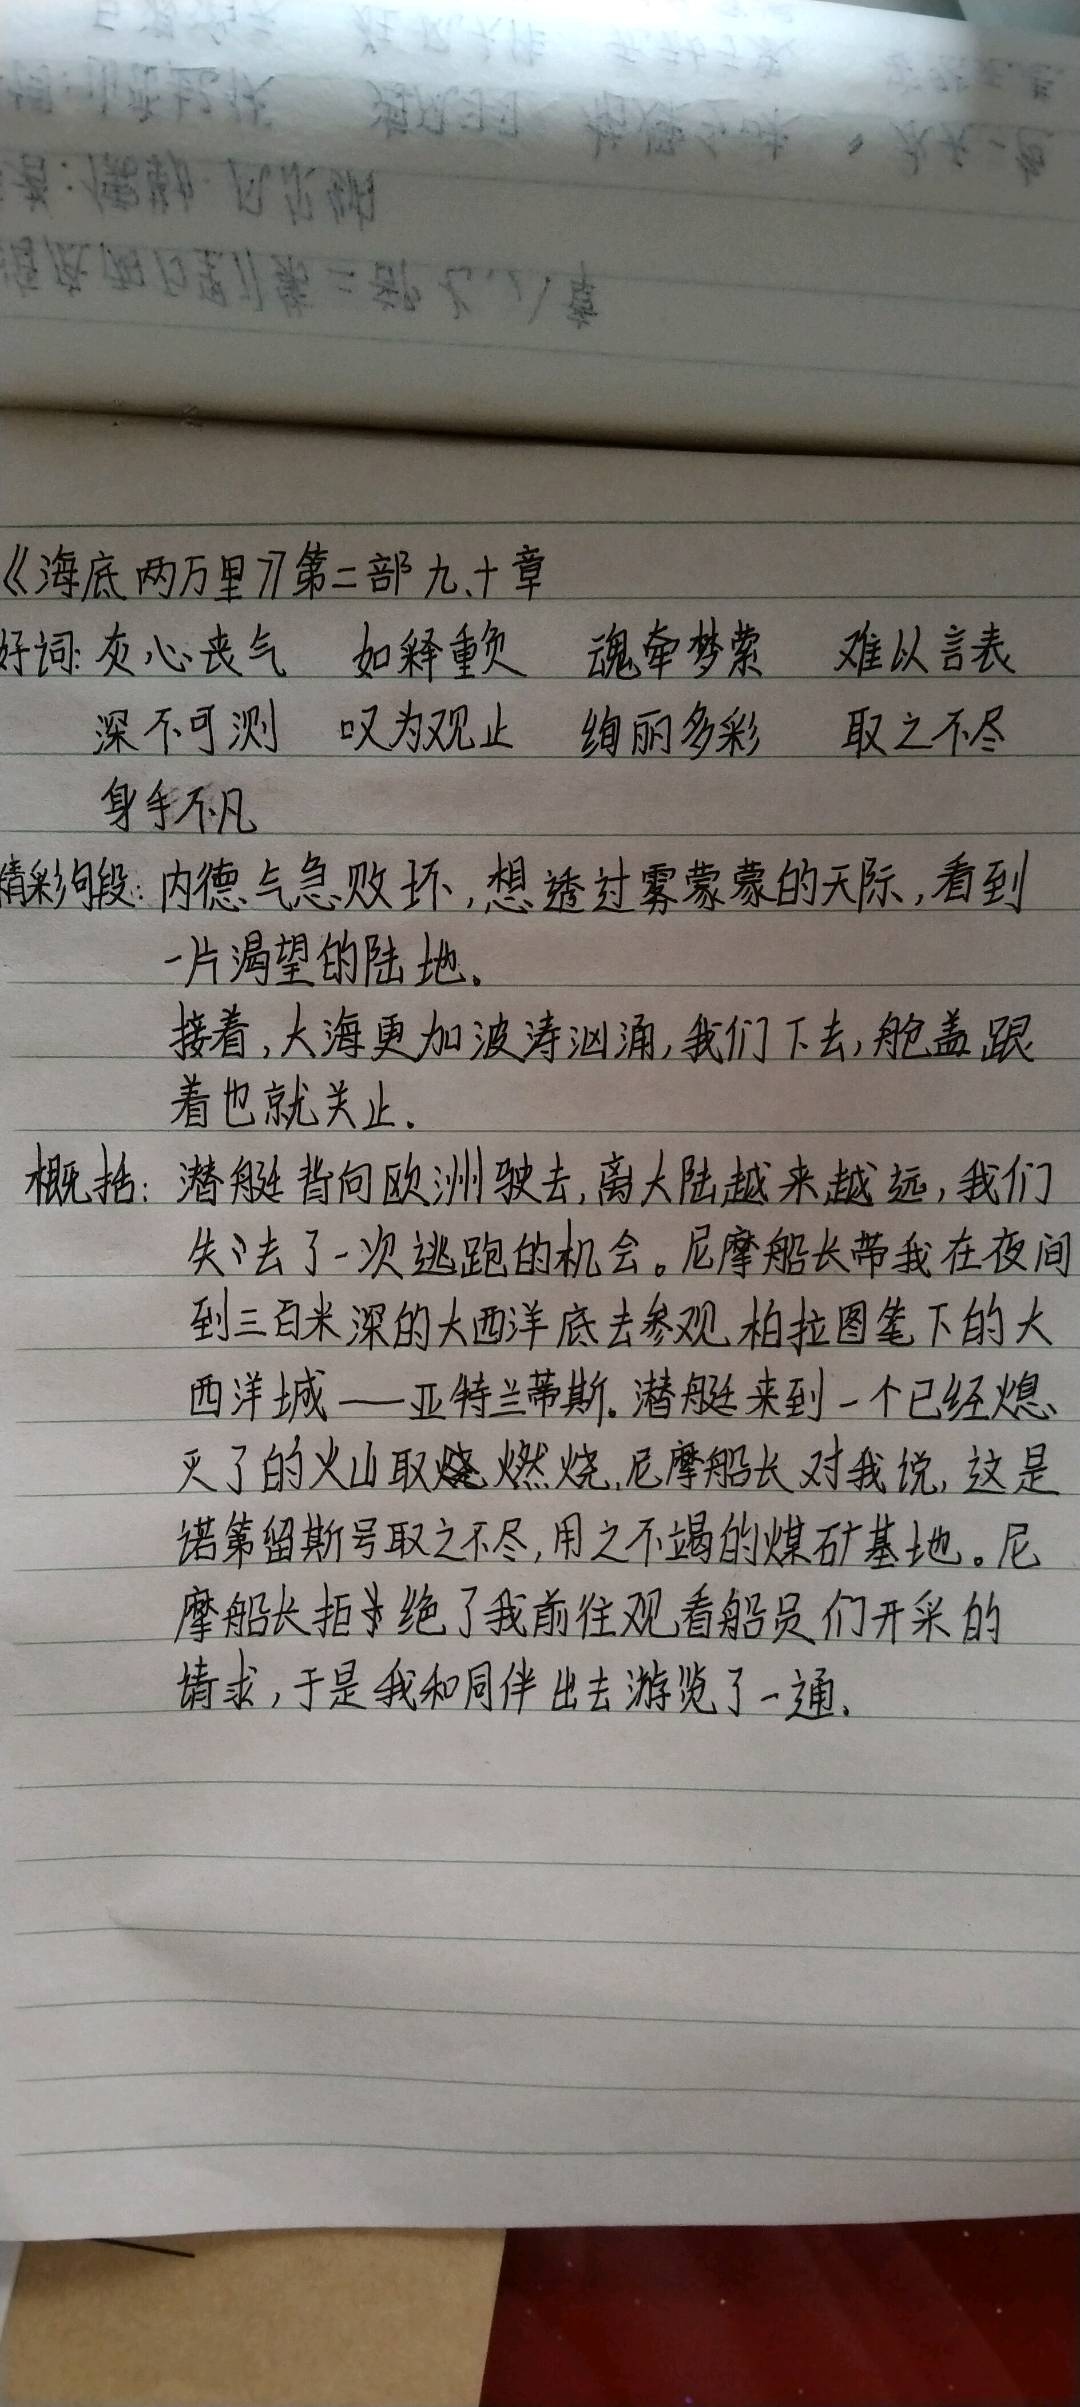 《海底两万里》第二部九、十章
好词: 灰心丧气 如释重负 魂牵梦萦 难以言表
深不可测 叹为观止 绚丽多彩 取之不尽
身手不凡
精彩句段: 内德气急败坏,想透过雾蒙蒙的天际,看到
一片渴望的陆地。
接着,大海更加波涛汹涌,我们下去,舱盖跟
着也就关止.
概括: 潜艇背向欧洲驶去,离大陆越来越远,我们
失去了一次逃跑的机会。尼摩船长带我在夜间
到三百米深的大西洋底去参观柏拉图笔下的大
西洋城——亚特兰蒂斯。潜艇来到一个已经熄
灭了的火山取燃烧,尼摩船长对我说,这是
诺第留斯号取之不尽,用之不竭的煤矿基地。尼
摩船长拒绝了我前往观看船员们开采的
请求,于是我和同伴出去游览了一通.